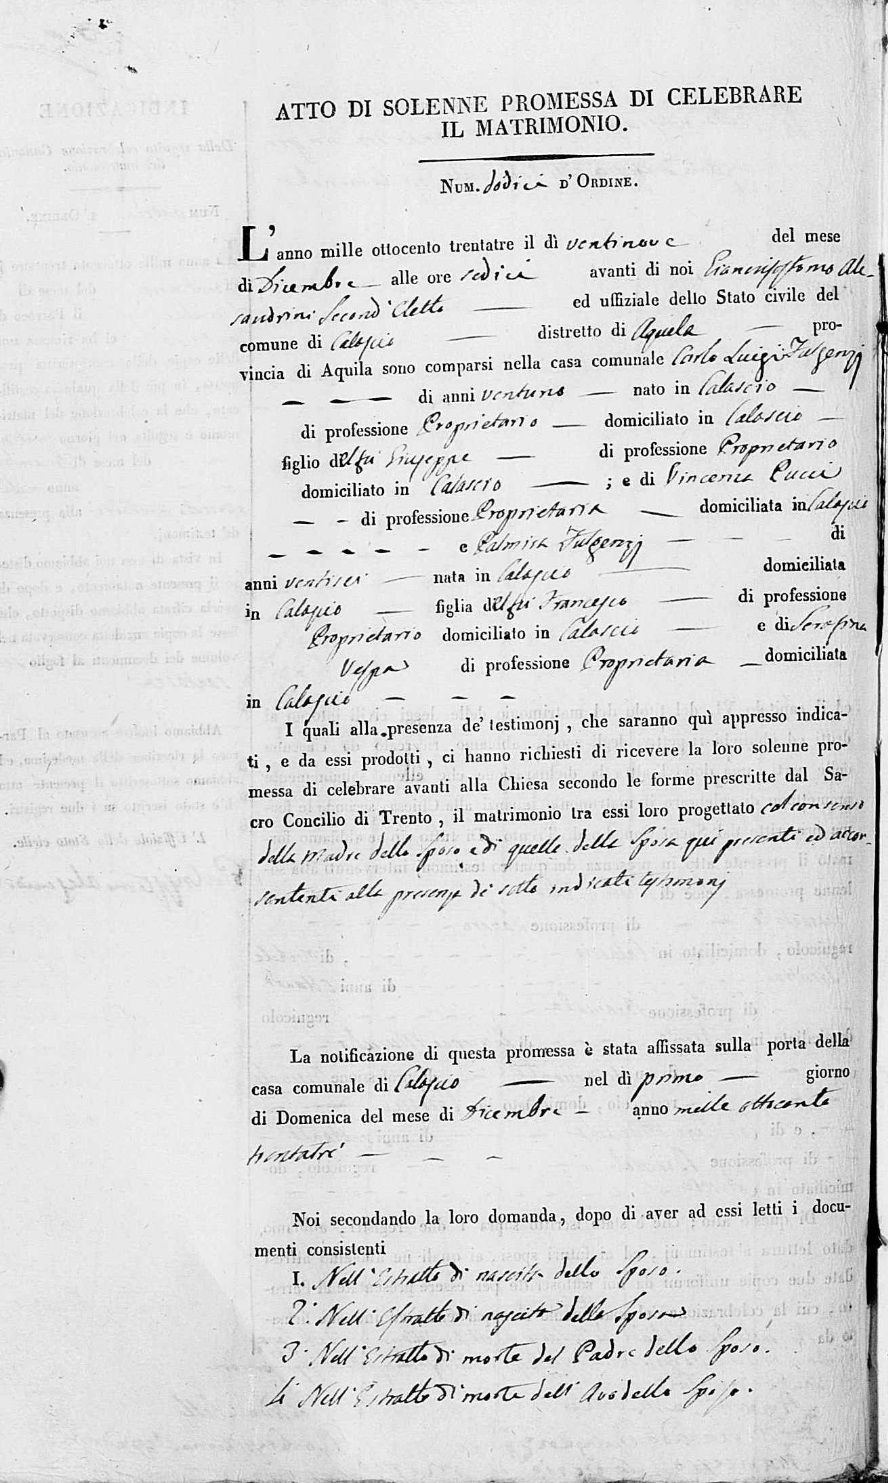 ATTO DI SOLENNE PROMESSA DI CELEBRARE
IL MATRIMONIO.
NUM. dodici D' ORDINE.
L' anno mille ottocento trentatre il dì ventinove del mese
di Dicembre alle ore sedici avanti di noi Gianchrisostomo Ale-
sandrini Second' Eletto ed uffiziale dello Stato civile del
comune di Calascio distretto di Aquila pro-
vincia di Aquila sono comparsi nella casa comunale Carlo Luigi Fulgenzj
di anni ventuno nato in Calascio
di professione Proprietario domiciliato in Calascio
figlio del fu Giuseppe di professione Proprietario
domiciliato in Calascio ; e di Vincenza Pucci
di professione Proprietaria domiciliata in Calascio
e Palmira Fulgenzj di
anni ventisei nata in Calascio domiciliata
in Calascio figlia del fu Francesco di professione
Proprietario domiciliato in Calascio e di Serafina
Vespa di professione Proprietaria domiciliata
in Calascio
I quali alla presenza de' testimonj , che saranno quì appresso indica-
ti , e da essi prodotti , ci hanno richiesti di ricevere la loro solenne pro-
messa di celebrare avanti alla Chiesa secondo le forme prescritte dal Sa-
cro Concilio di Trento , il matrimonio tra essi loro progettato col consenso
della madre dello Sposo e di quelle della Sposa qui presenti ed accon-
sententi alla presenza de' sotto indicati testimonj
La notificazione di questa promessa è stata affissata sulla porta della
casa comunale di Calascio nel dì primo giorno
di Domenica del mese di Dicembre anno mille ottocento
trentatré
Noi secondando la loro domanda , dopo di aver ad essi letti i docu-
menti consistenti
1. Nell' Estratto di nascita dello Sposo.
2. Nell' Estratto di nascita della Sposa
3. Nell' Estratto di morte del Padre dello Sposo.
4. Nell' Estratto di morte dell' Avo dello Sposo.